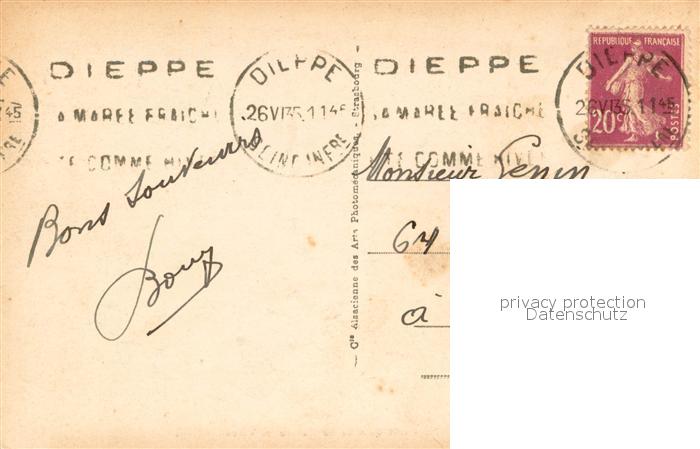 DIEPPE
DIEPPE
26 VI 35 11 45
SEINE INFRE
LA MAREE FRAICHE
ETE COMME HIVER
DIEPPE
LA MAREE FRAICHE
ETE COMME HIVER
REPUBLIQUE FRANÇAISE
20c
POSTES
DIEPPE
26 VI 35 11 45
Bons souvenirs
Cie Alsacienne des Arts Photomécaniques - Strasbourg
Monsieur
64
à
privacy protection
Datenschutz